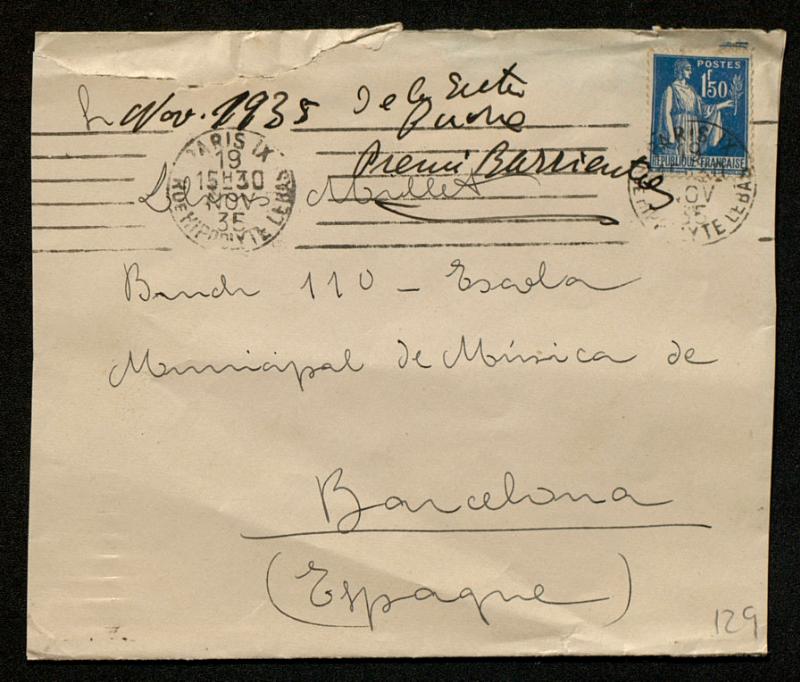 Nov. 1935 De la
Premi Barrientos
POSTES
1F50
REPUBLIQUE FRANÇAISE
PARIS IX
19
15H30
NOV
35
RUE HIPPOLYTE LEBAS
PARIS IX
19
NOV
35
Millet
Bruch 110 - Escola
Municipal de Música de
Barcelona
(Espagne)
129